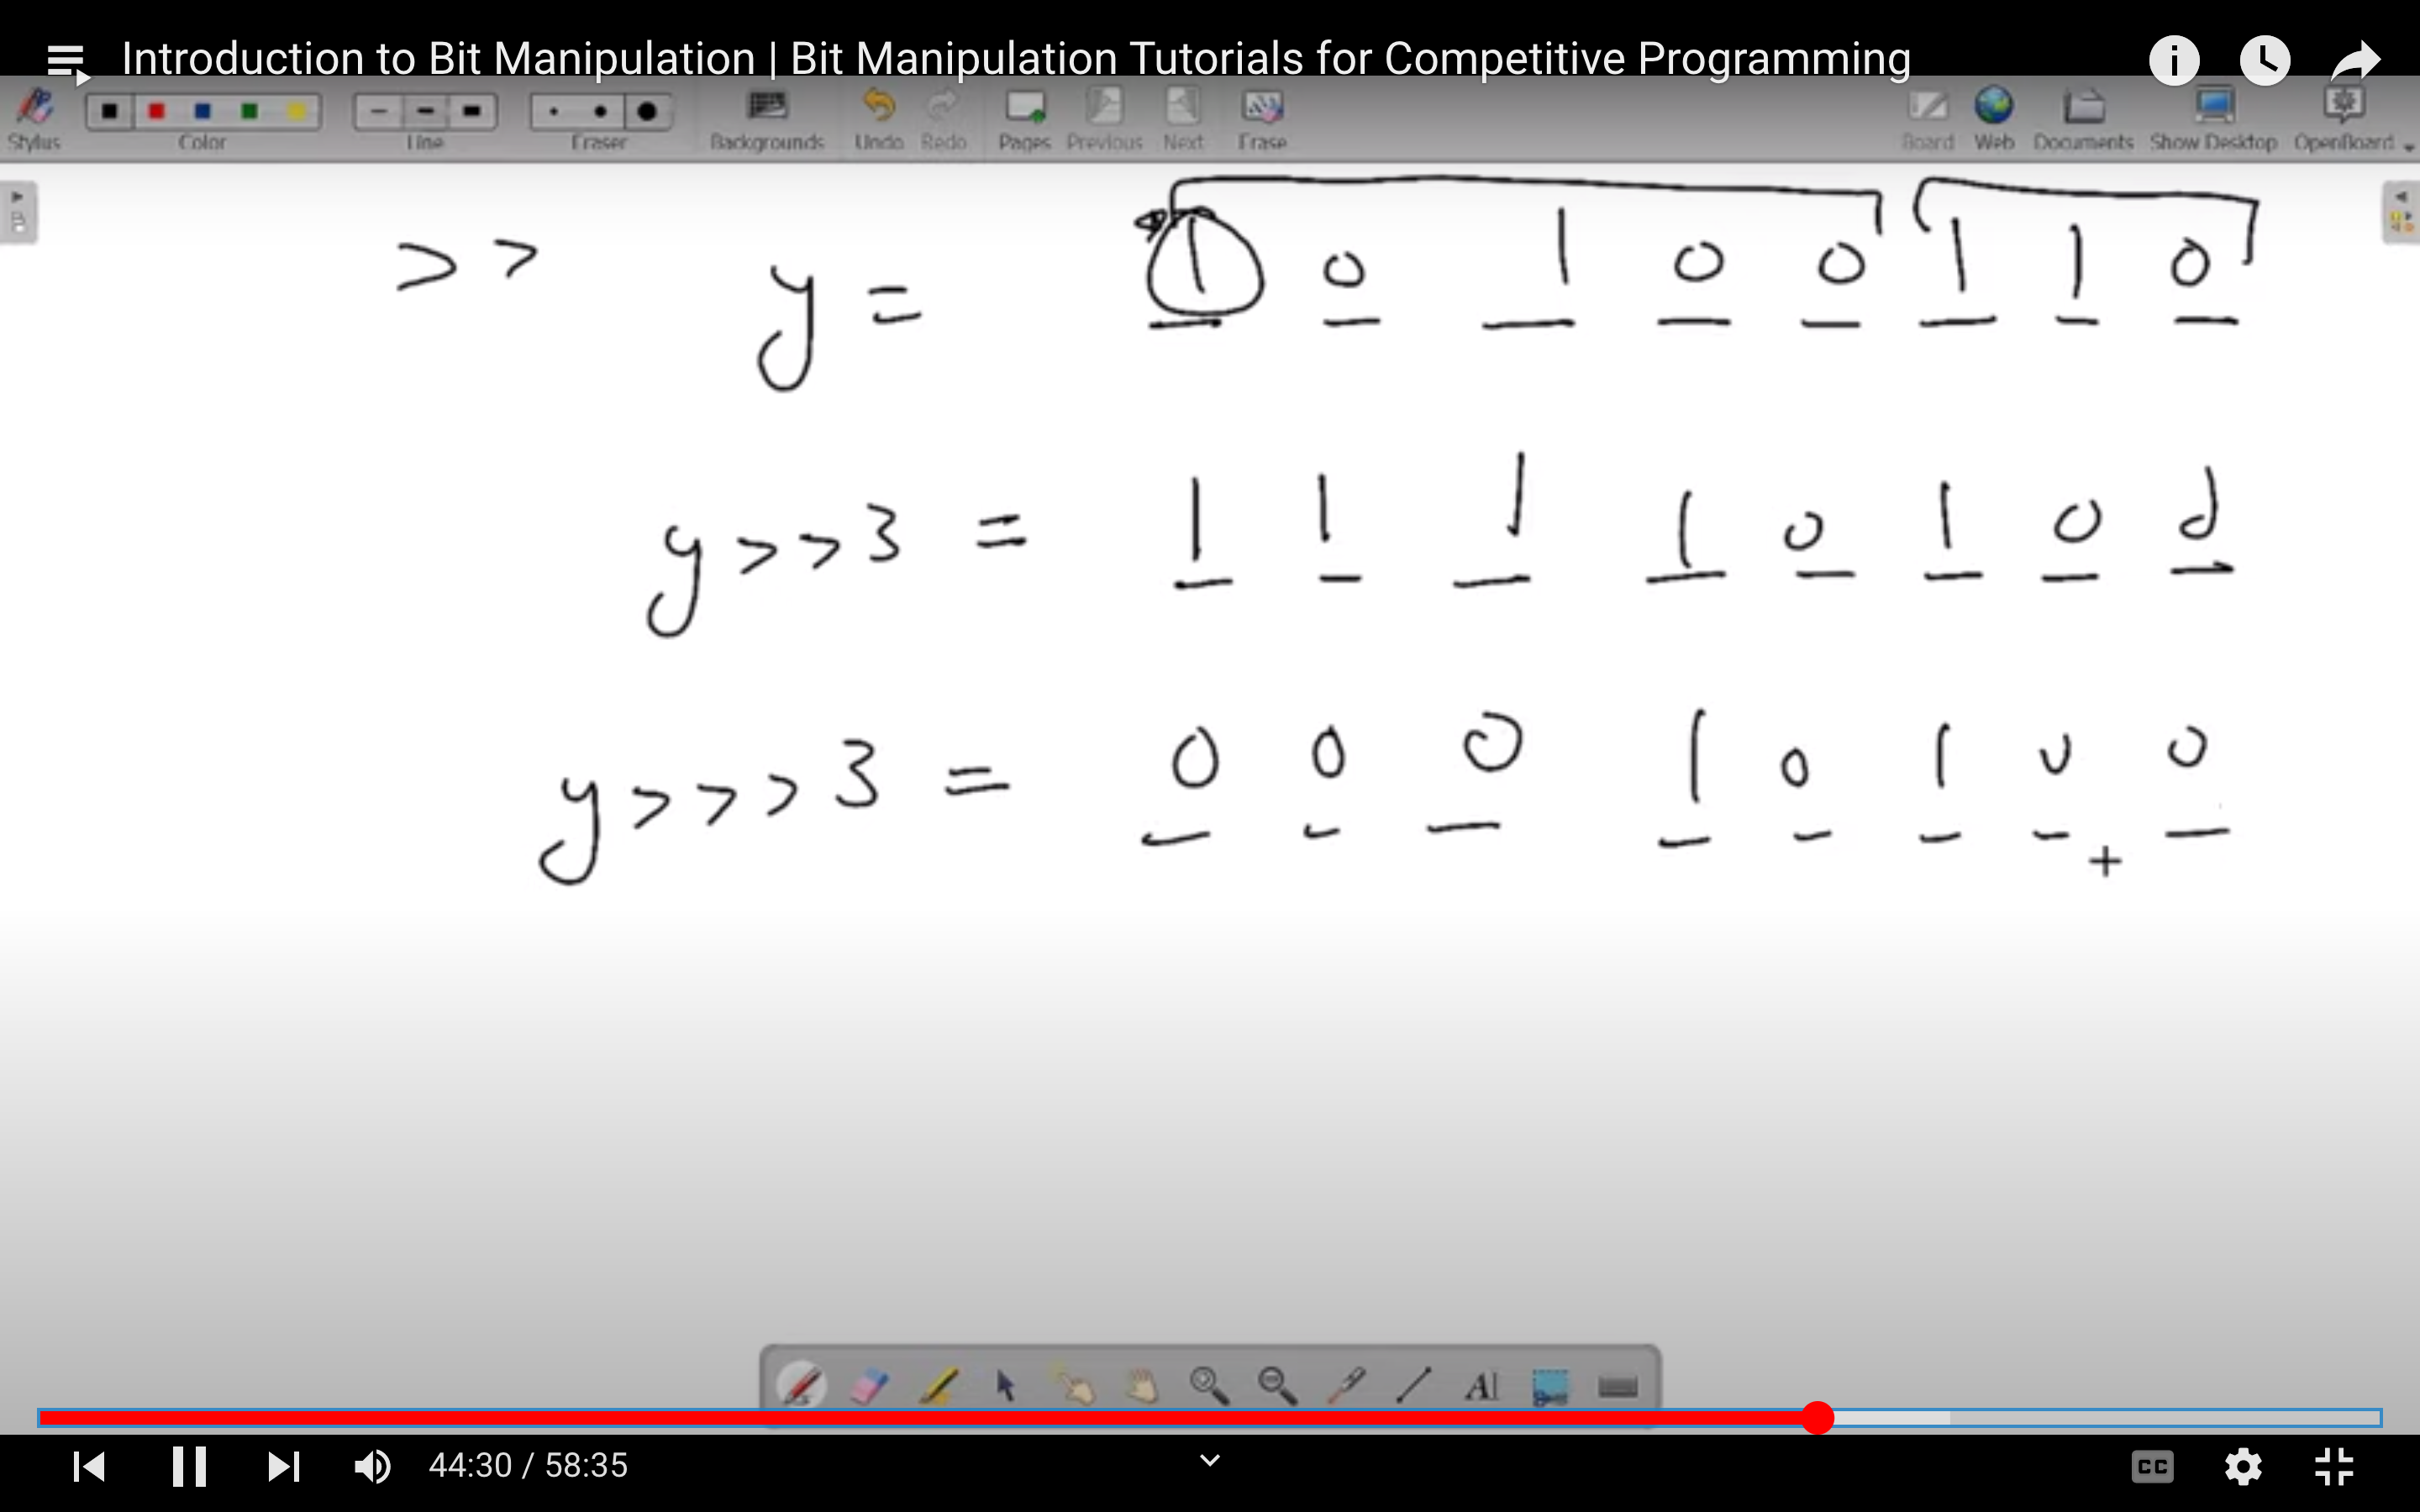 Introduction to Bit Manipulation | Bit Manipulation Tutorials for Competitive Programming
Stylus Color Line Eraser Backgrounds Undo Redo Pages Previous Next Erase Board Web Documents Show Desktop OpenBoard
>> y = 1 0 1 0 0 1 1 0
y>>3 = 1 1 1 1 0 1 0 0
y>>>3 = 0 0 0 1 0 1 0 0
AI
44:30 / 58:35 CC